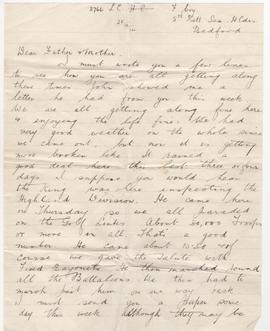 2766 L C H F Coy
5th Batt Sea. H'ders
Bedford
Dear Father & Mother.
I must write you a few lines
to see how you are all getting along
these times John showed me a
letter he had from you this week
We are all getting along fine here
& enjoying the life fine. We had
very good weather on the whole since
we came out. but now it is getting
more broken like It rained a
deal here the last three or four
days I suppose you would hear
the King was here inspecting the
Highland Division. He came here
on Thursday so we all paraded
on the Golf Links About 20,000 troops
or more I er all. That's a good
number He came about 10.30 of
course we gave the Salute with
Fixed Bayonets He then marched round
all the Battalions We then had to
march past him on our way back
I must send you a Paper some
day this week although they may be